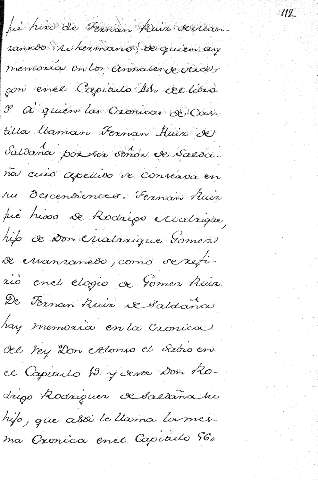 112
fue hixo de Fernan Ruiz de Man-
zanedo su hermano, de quien ay
memoria en los Annales de Ara-
gon en el Capitulo del libro
y á quien las Cronicas de Cas-
tilla llaman Fernan Ruiz de
Saldaña por ser Señor de Salda-
ña cuio apelido se conserva en
su Descendiencia. Fernan Ruiz
fue hixo de Rodrigo Malrique,
hijo de Don Malrrique Gomez
de Manzanedo, como se refi-
rió en el elogio de Gomez Ruiz
De Fernan Ruiz de Saldaña
hay memoria en la Cronica
del Rey Don Alonso el Sabio en
el Capitulo y de Don Ro-
drigo Rodriguez de Saldaña su
hijo, que assi le llama la mes-
ma Cronica en el Capitulo